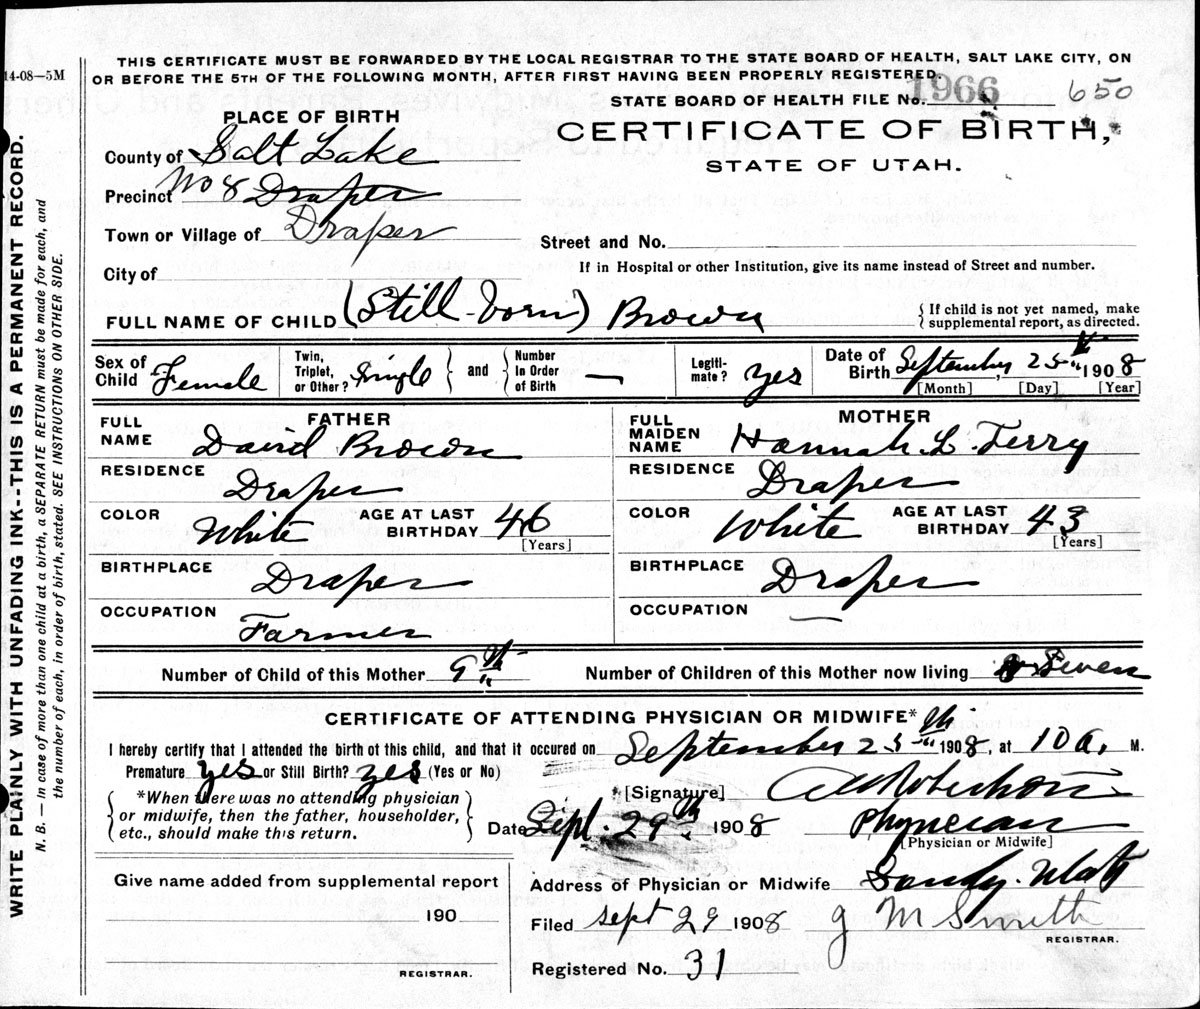 THIS CERTIFICATE MUST BE FORWARDED BY THE LOCAL REGISTRAR TO THE STATE BOARD OF HEALTH, SALT LAKE CITY, ON
14-08—5M
OR BEFORE THE 5TH OF THE FOLLOWING MONTH, AFTER FIRST HAVING BEEN PROPERLY REGISTERED.
STATE BOARD OF HEALTH FILE No. 1966 650
PLACE OF BIRTH
CERTIFICATE OF BIRTH,
STATE OF UTAH.
County of Salt Lake
Precinct No 8 Draper
Town or Village of Draper
Street and No.
City of
If in Hospital or other Institution, give its name instead of Street and number.
FULL NAME OF CHILD (Still-born) Brown
{If child is not yet named, make
supplemental report, as directed.
Sex of Child Female
Twin, Triplet, or Other? Single } and { Number In Order of Birth —
Legiti-mate? yes
Date of Birth September, 25th 1908
[Month] [Day] [Year]
FATHER
FULL NAME David Brown
RESIDENCE Draper
COLOR White AGE AT LAST BIRTHDAY 46 [Years]
BIRTHPLACE Draper
OCCUPATION Farmer
MOTHER
FULL MAIDEN NAME Hannah L. Terry
RESIDENCE Draper
COLOR White AGE AT LAST BIRTHDAY 43 [Years]
BIRTHPLACE Draper
OCCUPATION —
Number of Child of this Mother 9th
Number of Children of this Mother now living Seven
CERTIFICATE OF ATTENDING PHYSICIAN OR MIDWIFE*
I hereby certify that I attended the birth of this child, and that it occured on September 25th 1908, at 10 a. M.
Premature yes or Still Birth? yes (Yes or No)
{*When there was no attending physician
or midwife, then the father, householder,
etc., should make this return.}
[Signature]
Date Sept. 29th, 1908 Physician
[Physician or Midwife]
Give name added from supplemental report
190
REGISTRAR.
Address of Physician or Midwife Sandy. Utah
Filed Sept 29 1908 g M Smith
REGISTRAR.
Registered No. 31
WRITE PLAINLY WITH UNFADING INK--THIS IS A PERMANENT RECORD.
N. B. — In case of more than one child at a birth, a SEPARATE RETURN must be made for each, and
the number of each, in order of birth, stated. SEE INSTRUCTIONS ON OTHER SIDE.